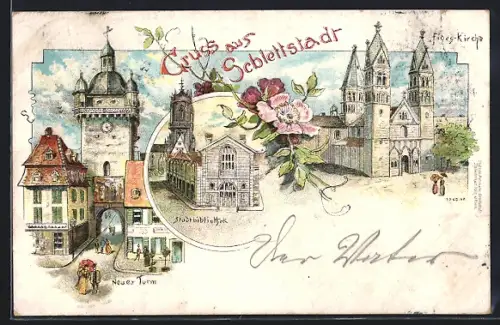 Gruss aus
Schlettstadt
Fides-Kirche
Stadtbibliothek
Neuer Turm
Der Vater